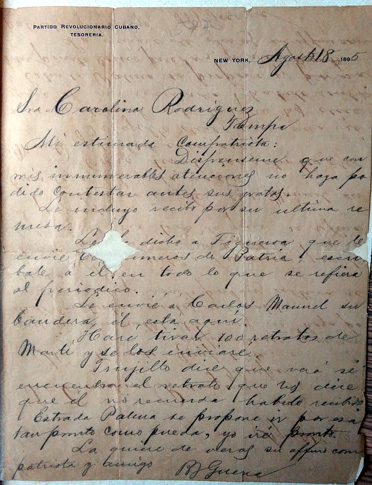 PARTIDO REVOLUCIONARIO CUBANO.
TESORERIA.
NEW YORK, Agosto 18 1895
Sra Carolina Rodriguez
Tampa
Mi estimada compatriota:
Dispenseme que con
mis innumerables atenciones no haya po
dido contestar antes sus gratas.
Le incluyo recibo por su ultima re
mesa.
Le he dicho a Figueroa que le
envie numeros de Patria y escri
bale a él en todo lo que se refiera
al periodico.
Le envié a Carlos Manuel su
bandera, él esta aqui.
Haré tirar 100 retratos de
Marti y se los enviaré.
Trujillo dice que verá si
encuentra el retrato que Vd dice
que él no recuerda haber recibido
Estrada Palma se propone ir por esa
tan pronto como pueda, yo iré pronto.
La quiere de veras su affmo com
patriota y amigo
B J Guerra